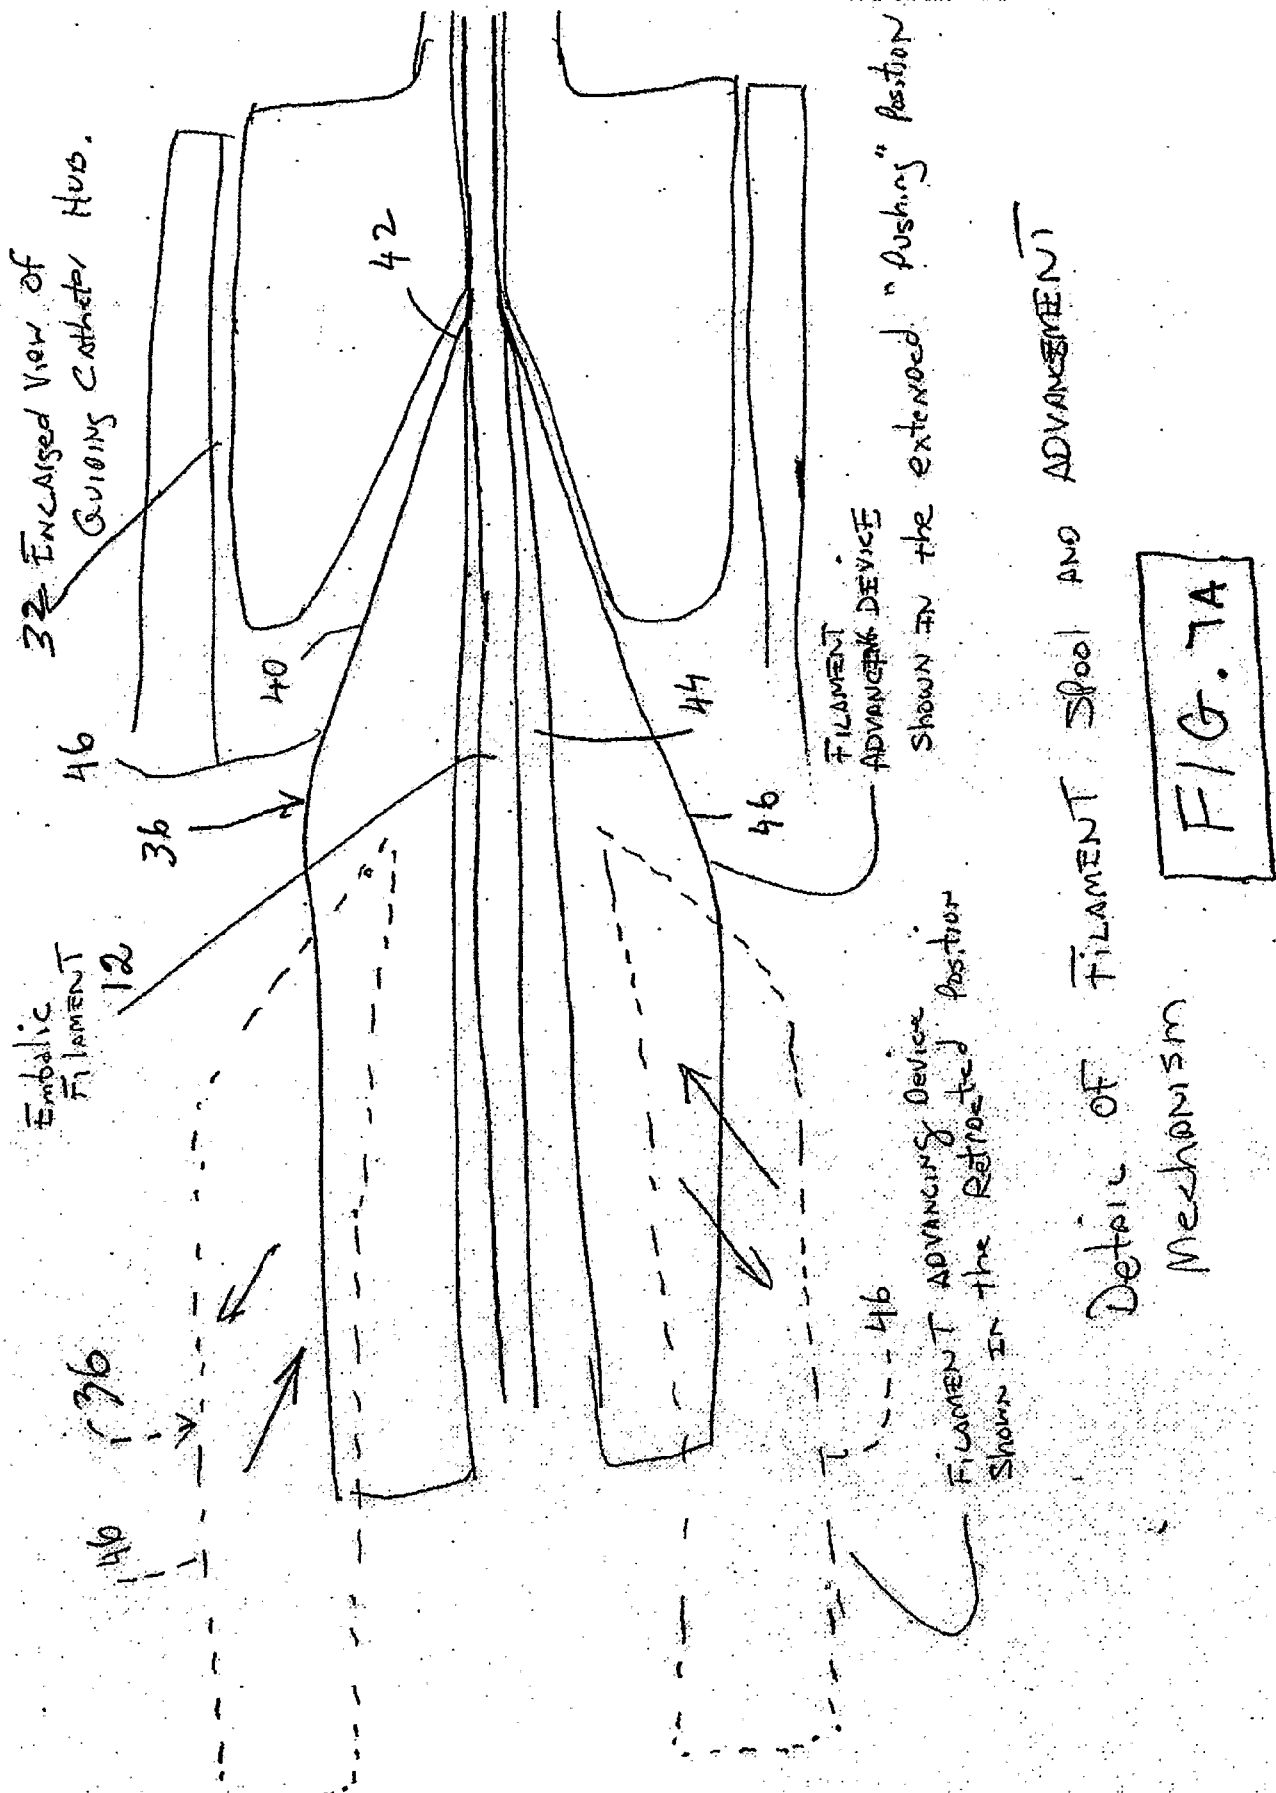 32 Enlarged View of
Guiding Catheter Hub.
46
36
40
42
Embolic
Filament
12
46
36
44
46
Filament
Advancing Device
Shown in the extended "Pushing" Position
46
Filament Advancing Device
Shown in the Retracted Position
Detail of Filament Spool and Advancement
Mechanism
FIG. 7A